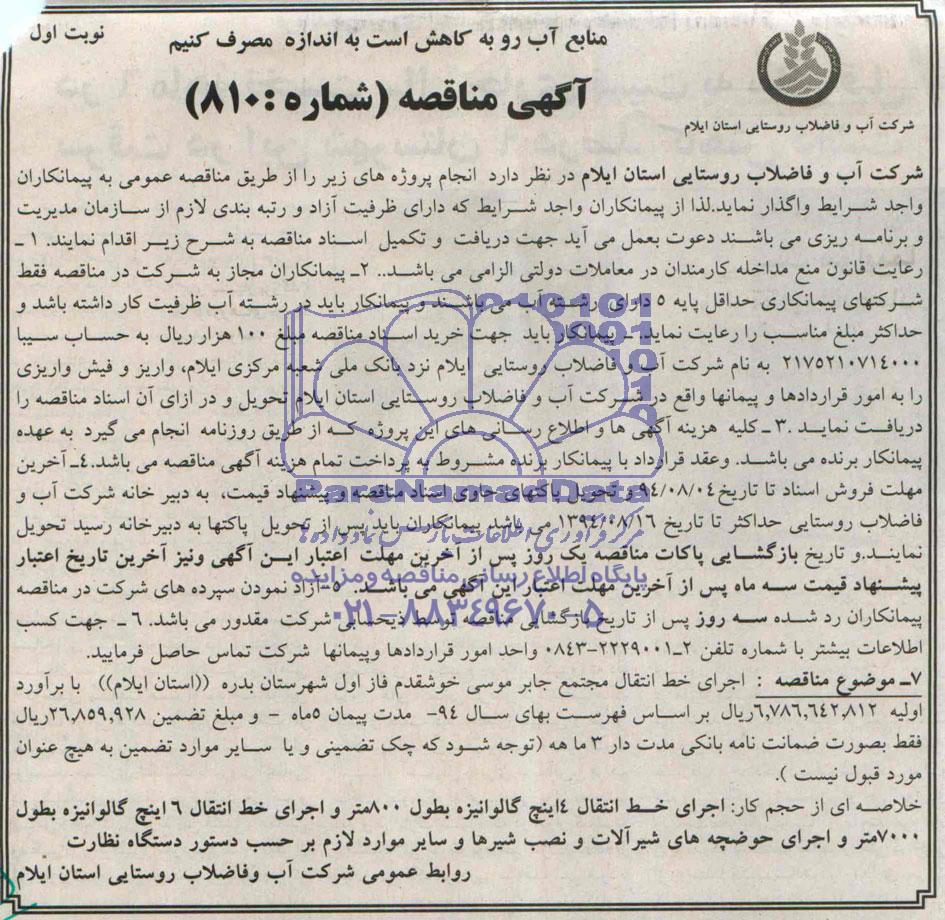 نوبت اول
منابع آب رو به کاهش است به اندازه مصرف کنیم
آگهی مناقصه (شماره :۸۱۰)
شرکت آب و فاضلاب روستایی استان ایلام
شرکت آب و فاضلاب روستایی استان ایلام در نظر دارد انجام پروژه های زیر را از طریق مناقصه عمومی به پیمانکاران
واجد شرایط واگذار نماید.لذا از پیمانکاران واجد شرایط که دارای ظرفیت آزاد و رتبه بندی لازم از سازمان مدیریت
و برنامه ریزی می باشند دعوت بعمل می آید جهت دریافت و تکمیل اسناد مناقصه به شرح زیر اقدام نمایند. ۱ـ
رعایت قانون منع مداخله کارمندان در معاملات دولتی الزامی می باشد.. ۲ـ پیمانکاران مجاز به شرکت در مناقصه فقط
شرکتهای پیمانکاری حداقل پایه ۵ دارای رشته آب می باشند و پیمانکار باید در رشته آب ظرفیت کار داشته باشد و
حداکثر مبلغ مناسب را رعایت نماید. ـ پیمانکار باید جهت خرید اسناد مناقصه مبلغ ۱۰۰ هزار ریال به حساب سیبا
۲۱۷۵۲۱۰۷۱۴۰۰۰ به نام شرکت آب و فاضلاب روستایی ایلام نزد بانک ملی شعبه مرکزی ایلام، واریز و فیش واریزی
را به امور قراردادها و پیمانها واقع در شرکت آب و فاضلاب روستایی استان ایلام تحویل و در ازای آن اسناد مناقصه را
دریافت نماید .۳ ـ کلیه هزینه آگهی ها و اطلاع رسانی های این پروژه که از طریق روزنامه انجام می گیرد به عهده
پیمانکار برنده می باشد. وعقد قرارداد با پیمانکار برنده مشروط به پرداخت تمام هزینه آگهی مناقصه می باشد.۴ـ آخرین
مهلت فروش اسناد تا تاریخ ۹۴/۰۸/۰۴ و تحویل پاکتهای حاوی اسناد مناقصه و پیشنهاد قیمت، به دبیر خانه شرکت آب و
فاضلاب روستایی حداکثر تا تاریخ ۱۳۹۴/۰۸/۱۶ می باشد پیمانکاران باید پس از تحویل پاکتها به دبیرخانه رسید تحویل
نمایند.و تاریخ بازگشایی پاکات مناقصه یک روز پس از آخرین مهلت اعتبار این آگهی ونیز آخرین تاریخ اعتبار
پیشنهاد قیمت سه ماه پس از آخرین مهلت اعتبار این آگهی می باشد. ۵ـ آزاد نمودن سپرده های شرکت در مناقصه
پیمانکاران رد شده سه روز پس از تاریخ بازگشایی مناقصه توسط ذیحسابی شرکت مقدور می باشد. ۶ ـ جهت کسب
اطلاعات بیشتر با شماره تلفن ۲ـ۲۲۲۹۰۰۱-۰۸۴۳ واحد امور قراردادها وپیمانها شرکت تماس حاصل فرمایید.
۷ـ موضوع مناقصه : اجرای خط انتقال مجتمع جابر موسی خوشقدم فاز اول شهرستان بدره ((استان ایلام)) با برآورد
اولیه ۶,۷۸۶,۶۴۲,۸۱۲ریال بر اساس فهرست بهای سال ۹۴- مدت پیمان ۵ماه - و مبلغ تضمین ۲۶,۸۵۹,۹۲۸ریال
فقط بصورت ضمانت نامه بانکی مدت دار ۳ ما هه (توجه شود که چک تضمینی و یا سایر موارد تضمین به هیچ عنوان
مورد قبول نیست ).
خلاصه ای از حجم کار: اجرای خط انتقال ۴اینچ گالوانیزه بطول ۸۰۰متر و اجرای خط انتقال ۶ اینچ گالوانیزه بطول
۷۰۰۰متر و اجرای حوضچه های شیرآلات و نصب شیرها و سایر موارد لازم بر حسب دستور دستگاه نظارت
روابط عمومی شرکت آب وفاضلاب روستایی استان ایلام
ParsNamadData
پایگاه اطلاع رسانی مناقصه و مزایده
۰۲۱-۸۸۳۴۹۶۷۰-۵